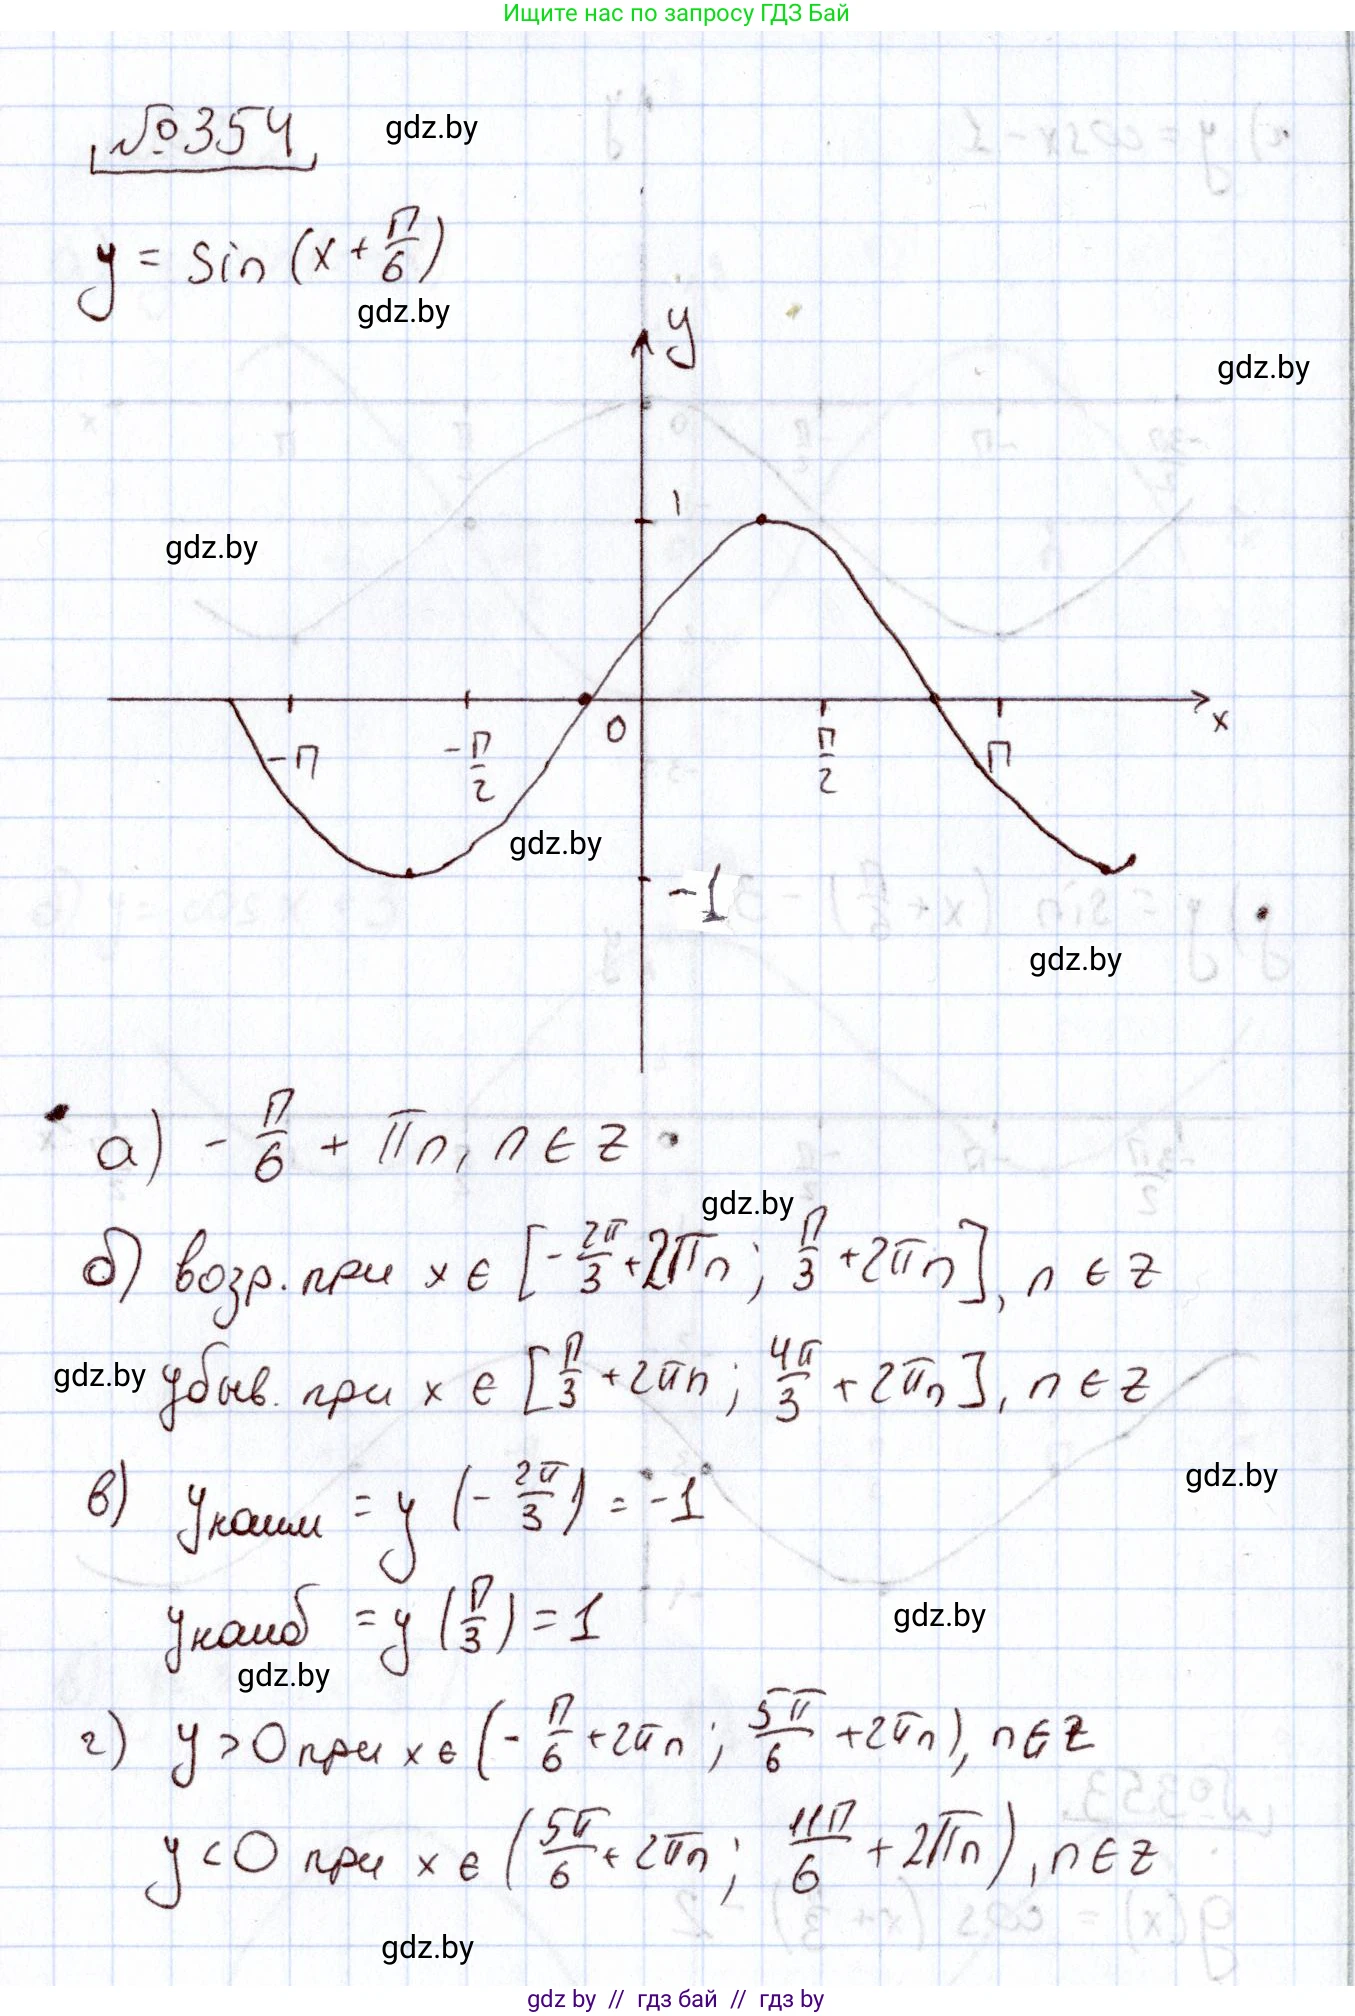 Ищите нас по запросу ГДЗ Бай
№354
gdz.by
y = sin (x + π/6)
gdz.by
y
gdz.by
1
gdz.by
-π
-π/2
0
π/2
π
x
gdz.by
-1
gdz.by
а) -π/6 + πn, n ∈ Z
gdz.by
б) возр. при x ∈ [-2π/3 + 2πn; π/3 + 2πn], n ∈ Z
gdz.by
убыв. при x ∈ [π/3 + 2πn; 4π/3 + 2πn], n ∈ Z
в) yнаим = y (-2π/3) = -1
gdz.by
yнаиб = y (π/3) = 1
gdz.by
gdz.by
г) y > 0 при x ∈ (-π/6 + 2πn; 5π/6 + 2πn), n ∈ Z
y < 0 при x ∈ (5π/6 + 2πn; 11π/6 + 2πn), n ∈ Z
gdz.by
gdz by // гдз бай // гдз by